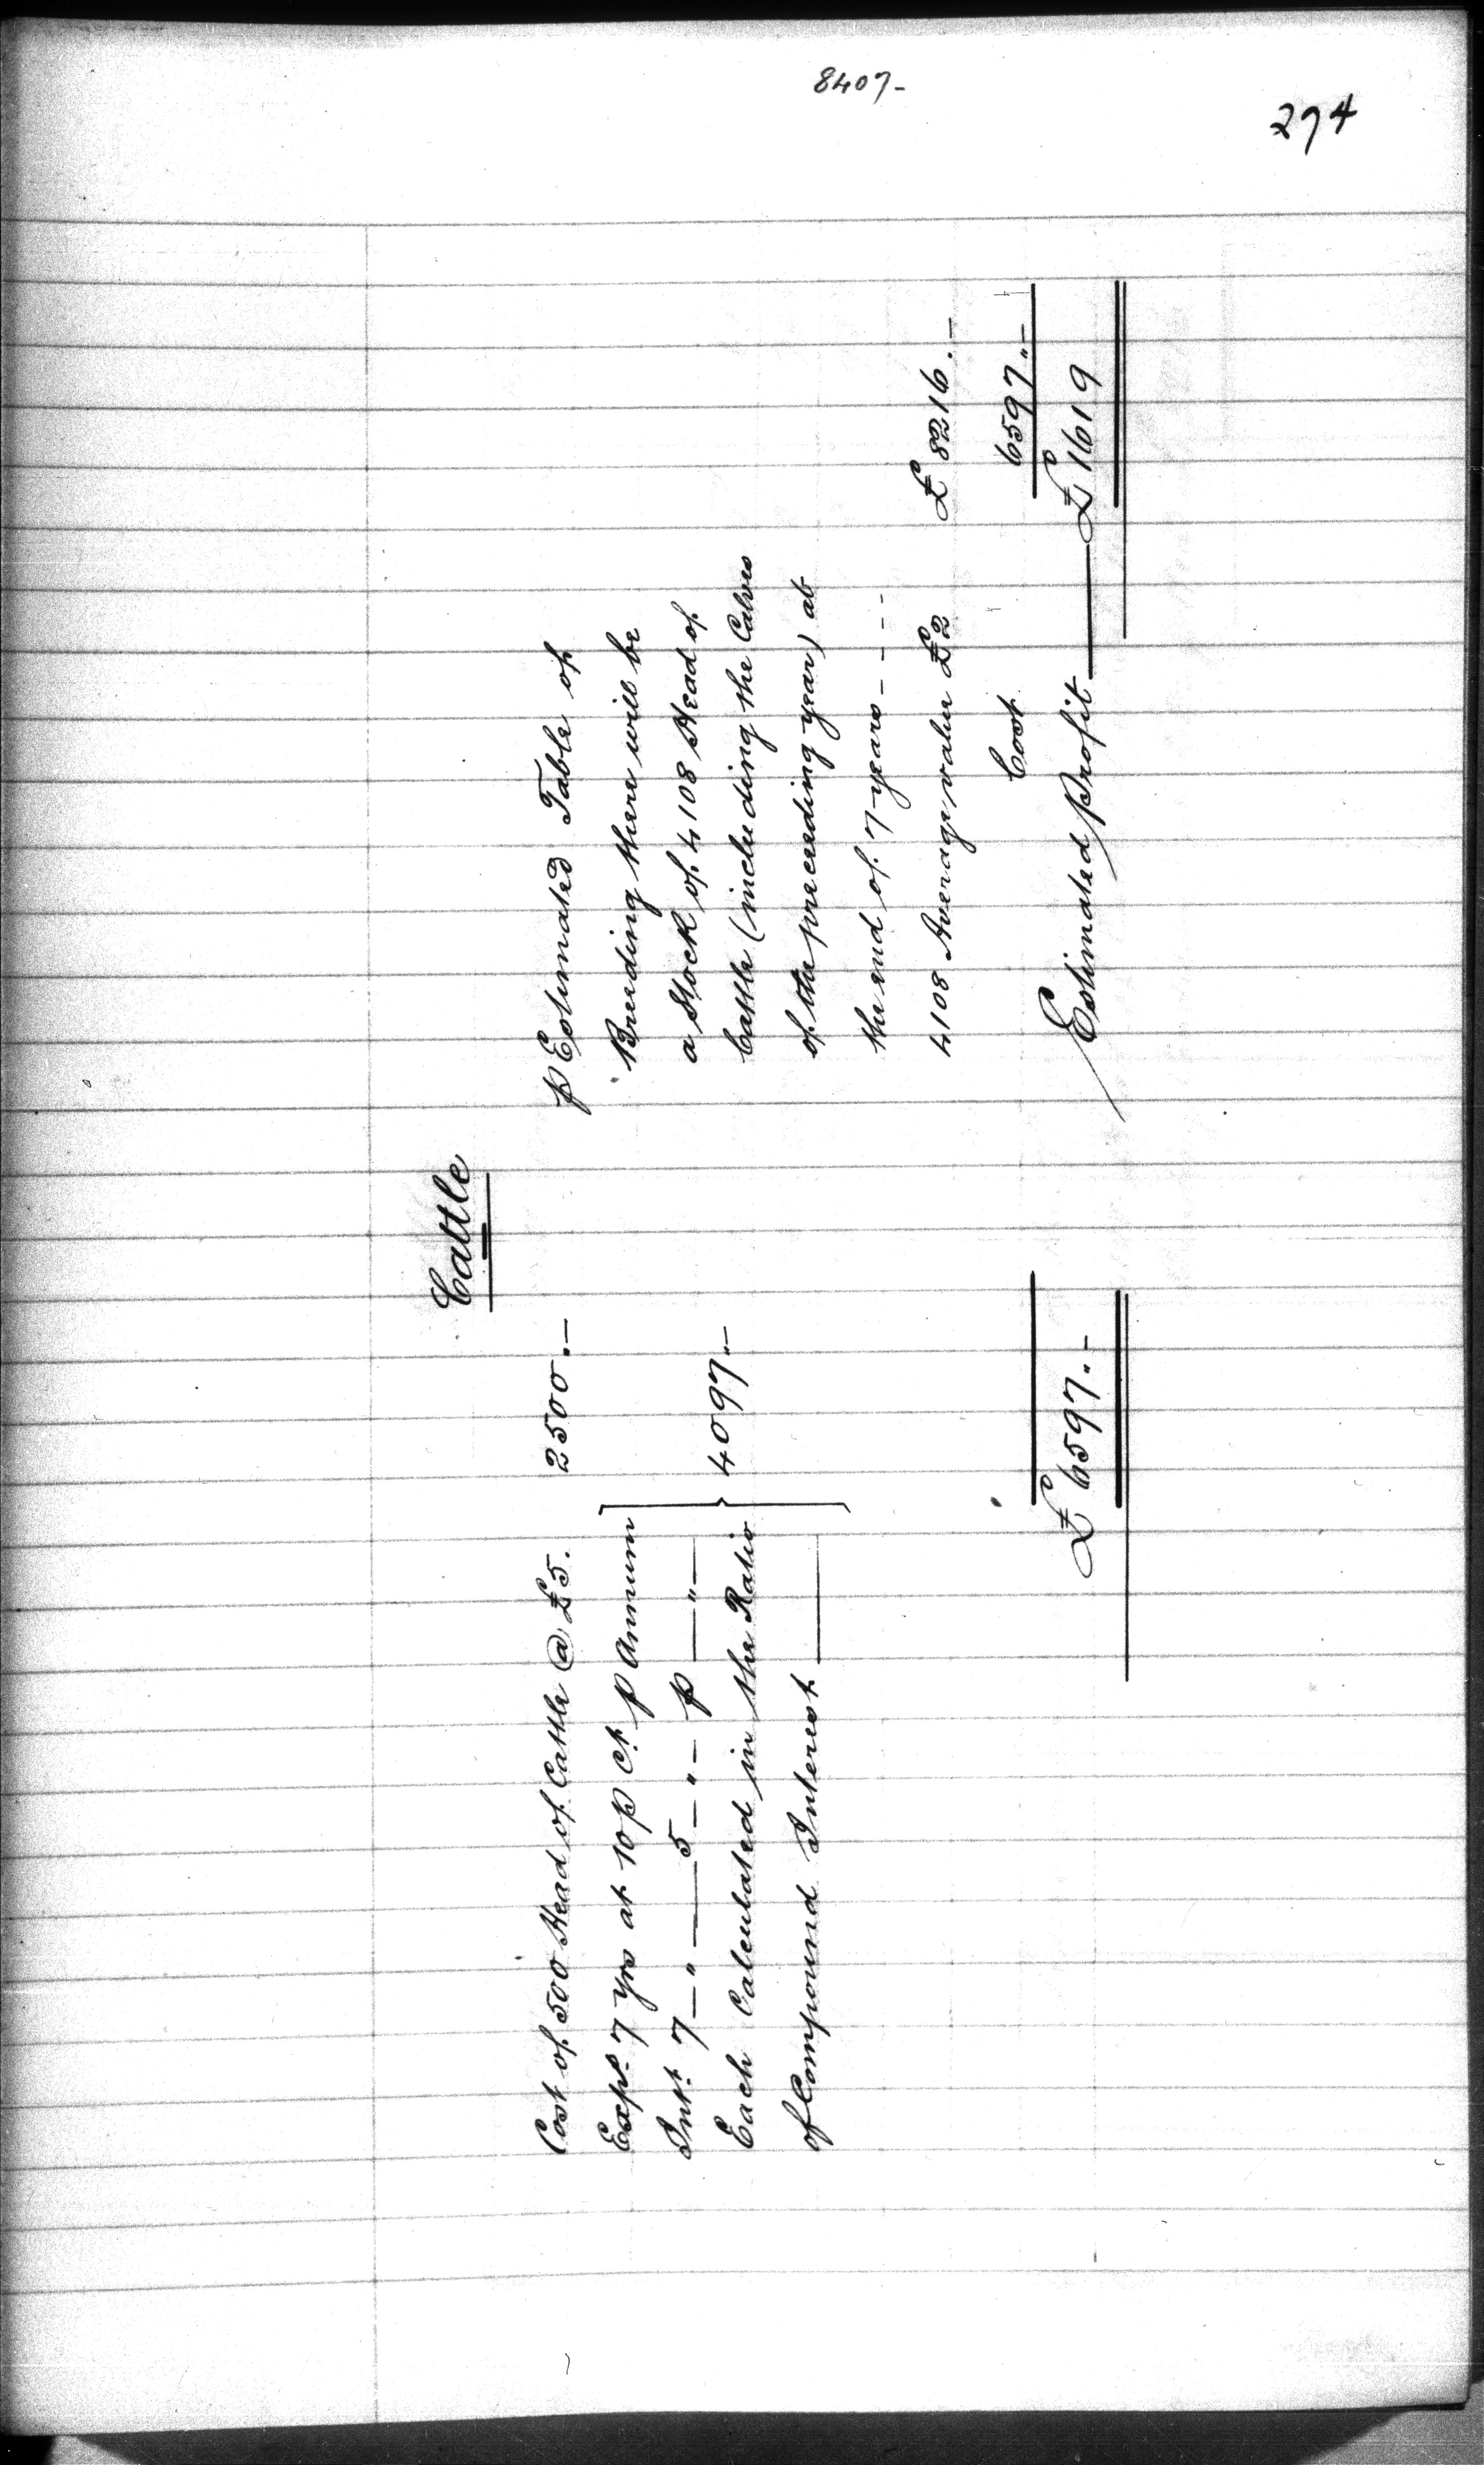 8407-
274
Cattle
Cost of 500 Head of Cattle @ £5. 2500.–
Exps. 7 yrs at 10 p Ct. p Annum
Int. 7 — " — 5 — " — p — " — 4097.–
Each Calculated in the Ratio
of Compound Interest
£6597..–
p Estimated Table of
Breeding there will be
a Stock of 4108 Head of
Cattle (including the Calves
of the preceeding year) at
the end of 7 years - - - -
4108 Average value £2 £8216.–
Cost 6597..–
Estimated Profit — £1619